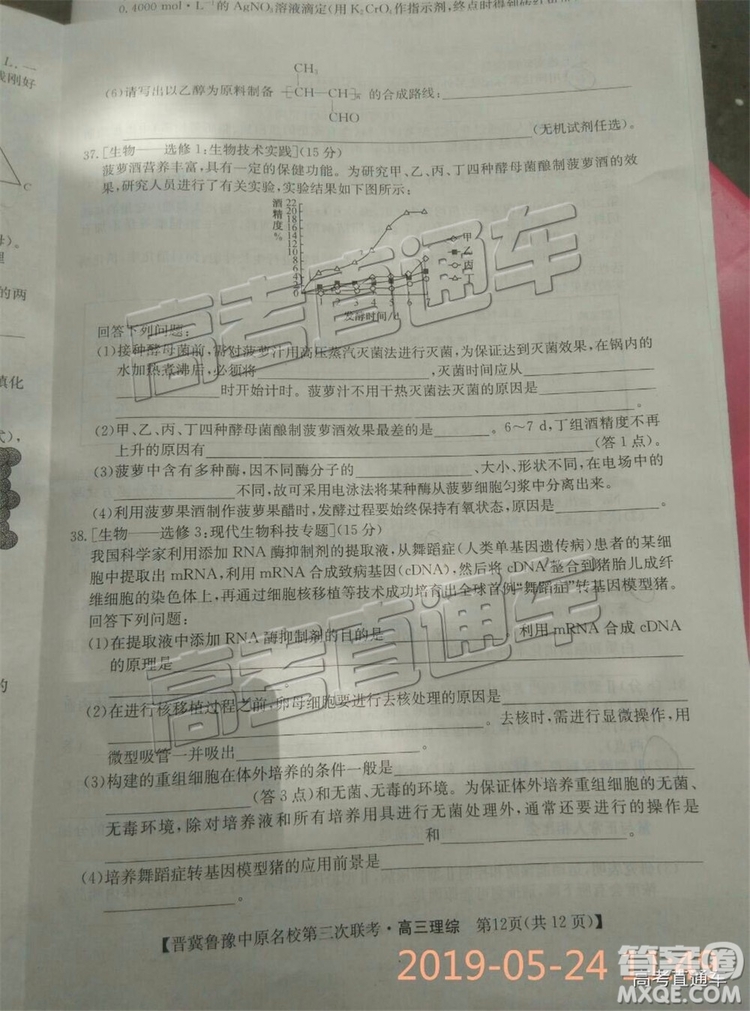 0.4000 mol·L⁻¹的AgNO₃溶液滴定(用K₂CrO₄作指示剂,终点时得到砖
CH₃
(6)请写出以乙醇为原料制备 [CH—CH]ₙ 的合成路线:
CHO
(无机试剂任选)。
37.[生物——选修1:生物技术实践](15分)
菠萝酒营养丰富,具有一定的保健功能。为研究甲、乙、丙、丁四种酵母菌酿制菠萝酒的效
果,研究人员进行了有关实验,实验结果如下图所示:
酒精度%
22
20
18
16
14
12
10
8
6
4
2
0
甲
乙
丙
发酵时间/d
回答下列问题:
(1)接种酵母菌前,需对菠萝汁用高压蒸汽灭菌法进行灭菌,为保证达到灭菌效果,在锅内的
水加热煮沸后,必须将,灭菌时间应从
时开始计时。菠萝汁不用干热灭菌法灭菌的原因是
。
(2)甲、乙、丙、丁四种酵母菌酿制菠萝酒效果最差的是。6~7 d,丁组酒精度不再
上升的原因有(答1点)。
(3)菠萝中含有多种酶,因不同酶分子的、大小、形状不同,在电场中的
不同,故可采用电泳法将某种酶从菠萝细胞匀浆中分离出来。
(4)利用菠萝果酒制作菠萝果醋时,发酵过程要始终保持有氧状态,原因是。
38.[生物——选修3:现代生物科技专题](15分)
我国科学家利用添加RNA酶抑制剂的提取液,从舞蹈症(人类单基因遗传病)患者的某细
胞中提取出mRNA,利用mRNA合成致病基因(cDNA),然后将cDNA整合到猪胎儿成纤
维细胞的染色体上,再通过细胞核移植等技术成功培育出全球首例“舞蹈症”转基因模型猪。
回答下列问题:
(1)在提取液中添加RNA酶抑制剂的目的是。利用mRNA合成cDNA
的原理是
。
(2)在进行核移植过程之前,卵母细胞要进行去核处理的原因是
。去核时,需进行显微操作,用
微型吸管一并吸出。
(3)构建的重组细胞在体外培养的条件一般是
(答3点)和无菌、无毒的环境。为保证体外培养重组细胞的无菌、
无毒环境,除对培养液和所有培养用具进行无菌处理外,通常还要进行的操作是
和。
(4)培养舞蹈症转基因模型猪的应用前景是
。
【晋冀鲁豫中原名校第三次联考·高三理综 第12页(共12页)】
高考直通车
高考直通车
2019-05-24 11:49
答案圈
高考直通车
MXQE.COM
C
线刚好
的两
填化
式),
的